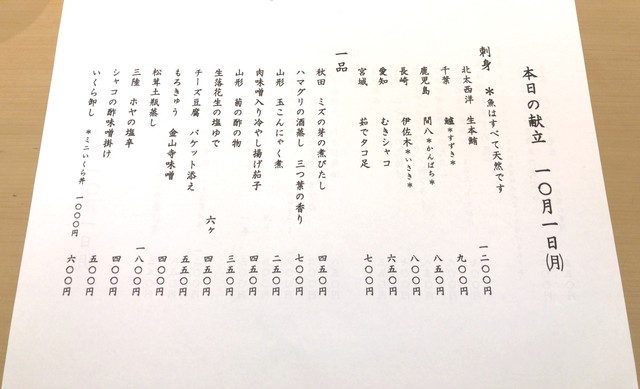 本日の献立 一〇月一日(月)
刺身 *魚はすべて天然です
北太西洋 生本鮪 一二〇〇円
千葉 鱸*すずき* 九〇〇円
鹿児島 間八*かんぱち* 八五〇円
長崎 伊佐木*いさき* 八〇〇円
愛知 むきシャコ 六五〇円
宮城 茹でタコ足 七〇〇円
一品
秋田 ミズの芽の煮びたし 四五〇円
ハマグリの酒蒸し 三つ葉の香り 七〇〇円
山形 玉こんにゃく煮 二五〇円
肉味噌入り冷やし揚げ茄子 四五〇円
山形 菊の酢の物 三五〇円
生落花生の塩ゆで 六ヶ 四五〇円
チーズ豆腐 バケット添え 五五〇円
もろきゅう 金山寺味噌 四〇〇円
松茸土瓶蒸し 一八〇〇円
三陸 ホヤの塩辛 四〇〇円
シャコの酢味噌掛け 五〇〇円
いくら卸し *ミニいくら丼 一〇〇〇円 六〇〇円